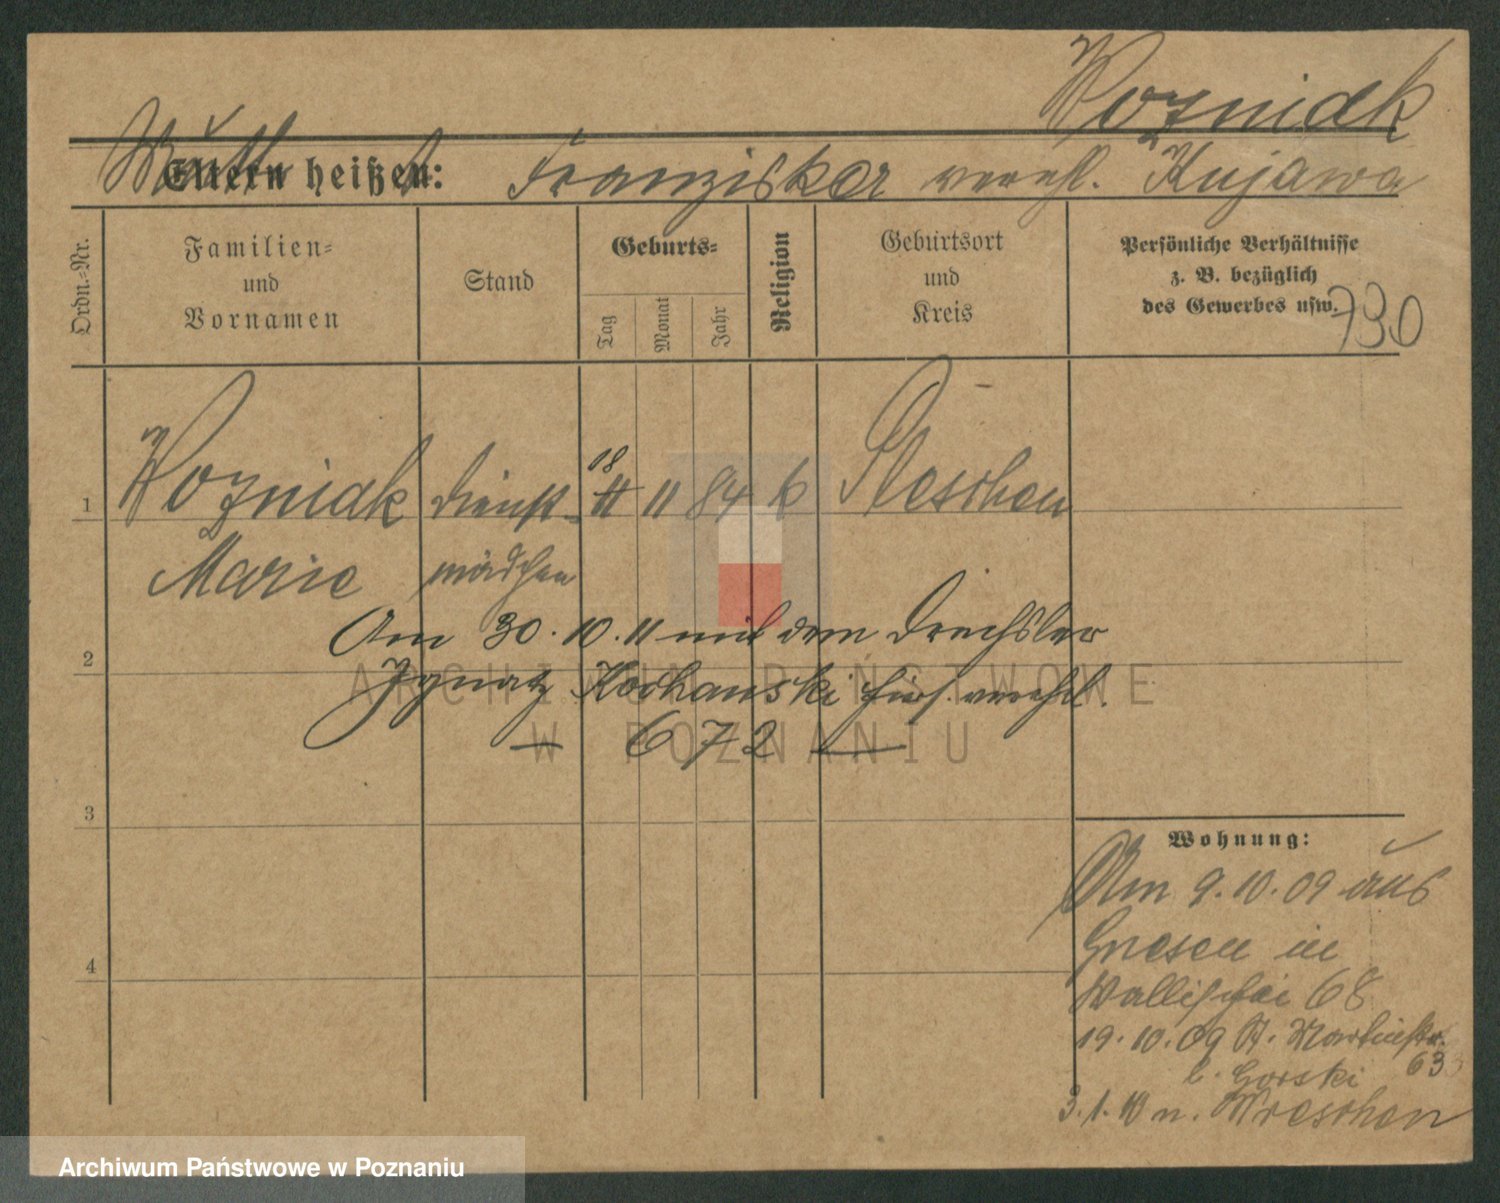 Wozniak
Eltern heißen: Franziska verehl. Kujawa
Ordn.-Nr.
Familien-
und
Vornamen
Stand
Geburts-
Tag
Monat
Jahr
Religion
Geburtsort
und
Kreis
Persönliche Verhältnisse
z. B. bezüglich
des Gewerbes usw.
730
1
Wozniak
Dienst-
18
11
11
84
k
Pleschen
Marie
mädchen
Am 30.10.11 mit dem Drechsler
2
Ignatz Kochanski hier verehl.
672
3
Wohnung:
Am 9.10.09 aus
Gnesen in
4
Wallischei 68
19.10.09 St. Martinstr.
63
b. Gorski
3.1.10 n. Wreschen
ARCHIWUM PAŃSTWOWE
W POZNANIU
Archiwum Państwowe w Poznaniu